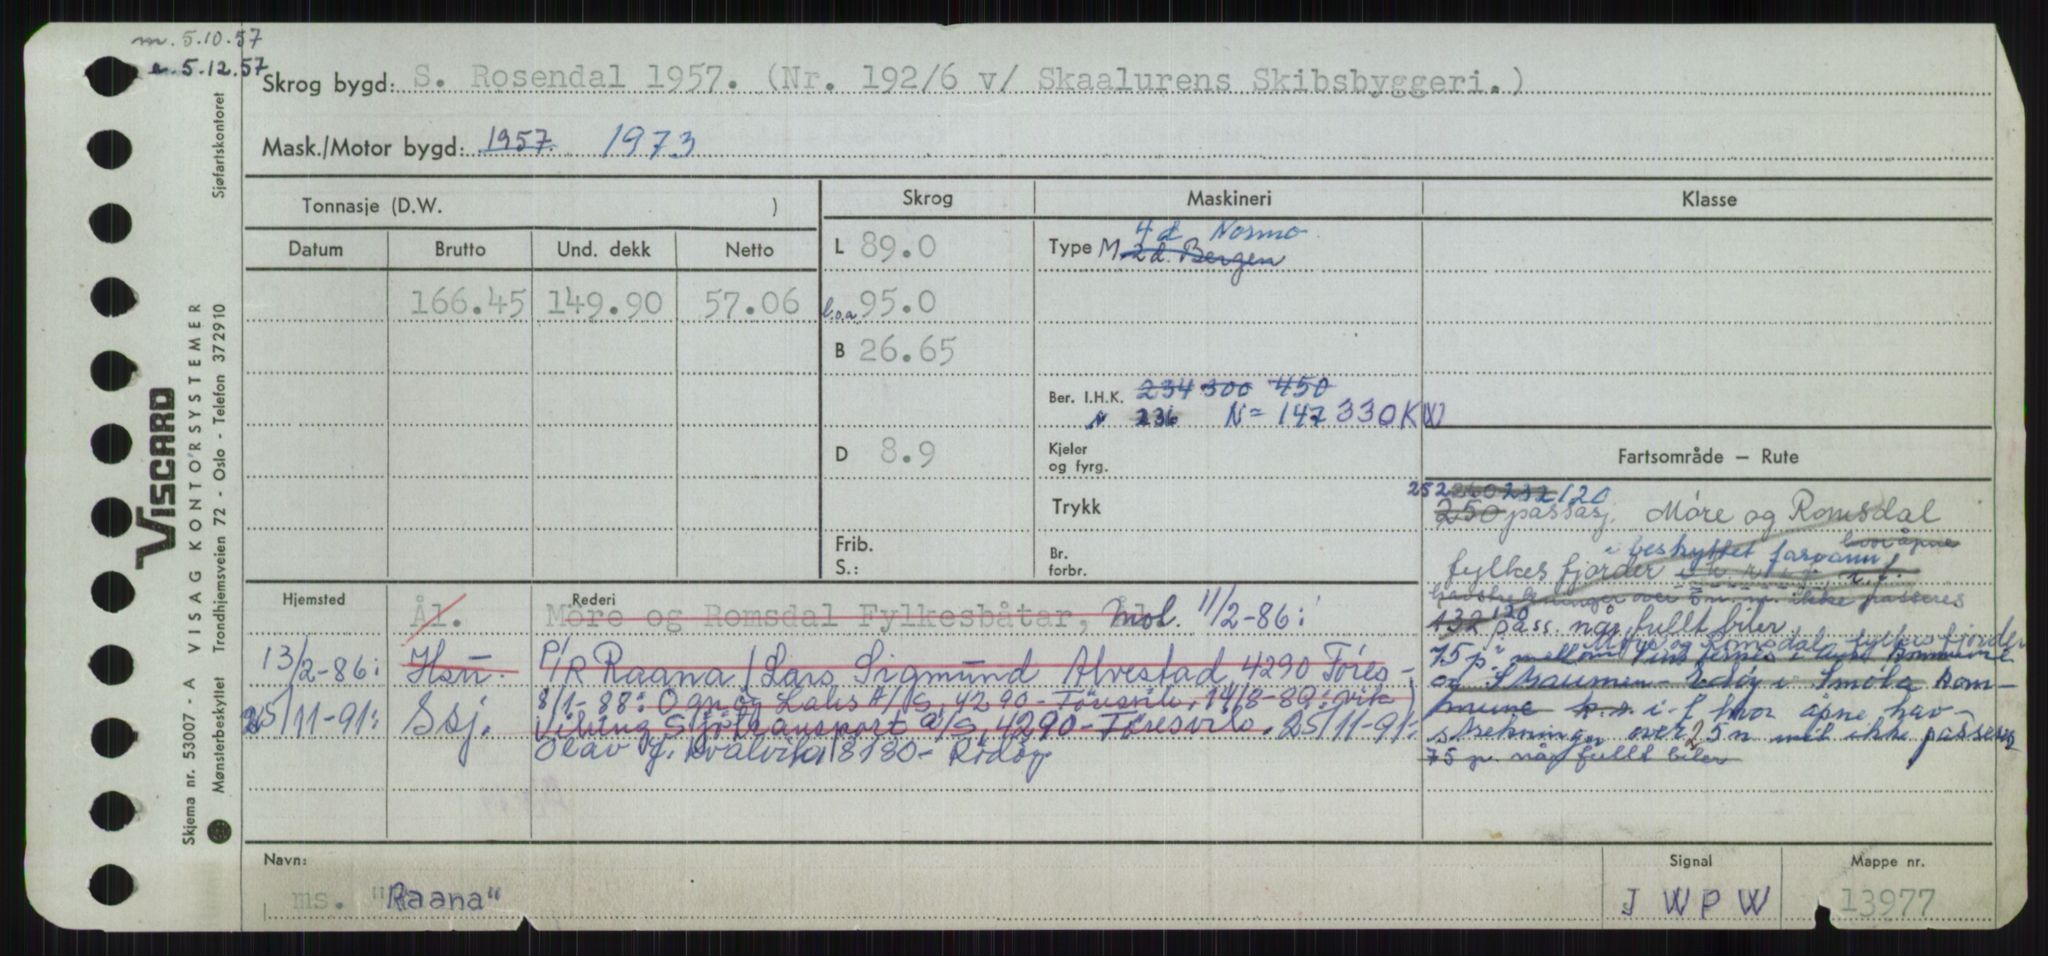 m. 5.10.57
e. 5.12.57
Skrog bygd: S. Rosendal 1957. (Nr. 192/6 v/ Skaalurens Skibsbyggeri.)
Mask./Motor bygd: 1957. 1973
Tonnasje (D.W. )
Skrog
Maskineri
Klasse
Datum Brutto Und. dekk Netto
166.45 149.90 57.06
L 89.0
l.o.a. 95.0
B 26.65
D 8.9
Frib.
S.:
4 d Normo
Type M 2 d. Bergen
Ber. I.H.K. 234 300 450
N 236 N= 147 330KW
Kjeler
og fyrg.
Trykk
Br.
forbr.
Fartsområde — Rute
252 260 232 120
250 passasj. Møre og Romsdal
i beskyttet farvann hvor åpne
fylkes fjorder
havstrekninger over ikke passeres
132 120 pass. når fullt biler
Møre og Romsdal fylkes fjorder
75 p. mellom kommune
og Skaumen - Edøy i Smøla kom-
mune i-f hvor åpne hav-
strekninger over 25 n mil ikke passeres
75 p. når fullt biler
Hjemsted
Rederi
Ål. Möre og Romsdal Fylkesbåtar, Mol. 11/2-86:
13/2-86: Hsn. P/R Raana / Lars Sigmund Alvestad 4290 Føres-
8/1-88: Ogn og Lahs A/S, 4290-Føresvik. 14/8-89: vik
25/11-91: Ssj. Viking Sjøtransport A/S, 4290-Føresvik. 25/11-91:
Olav J. Kvalvik, 8180- Rødøy
Navn:
ms. "Raana"
Signal
J W P W
Mappe nr.
13977
VISCARD
VISAG KONTORSYSTEMER
Skjema nr. 53007 - A
Mønsterbeskyttet
Trondhjemsveien 72 - Oslo - Telefon 372910
Sjøfartskontoret